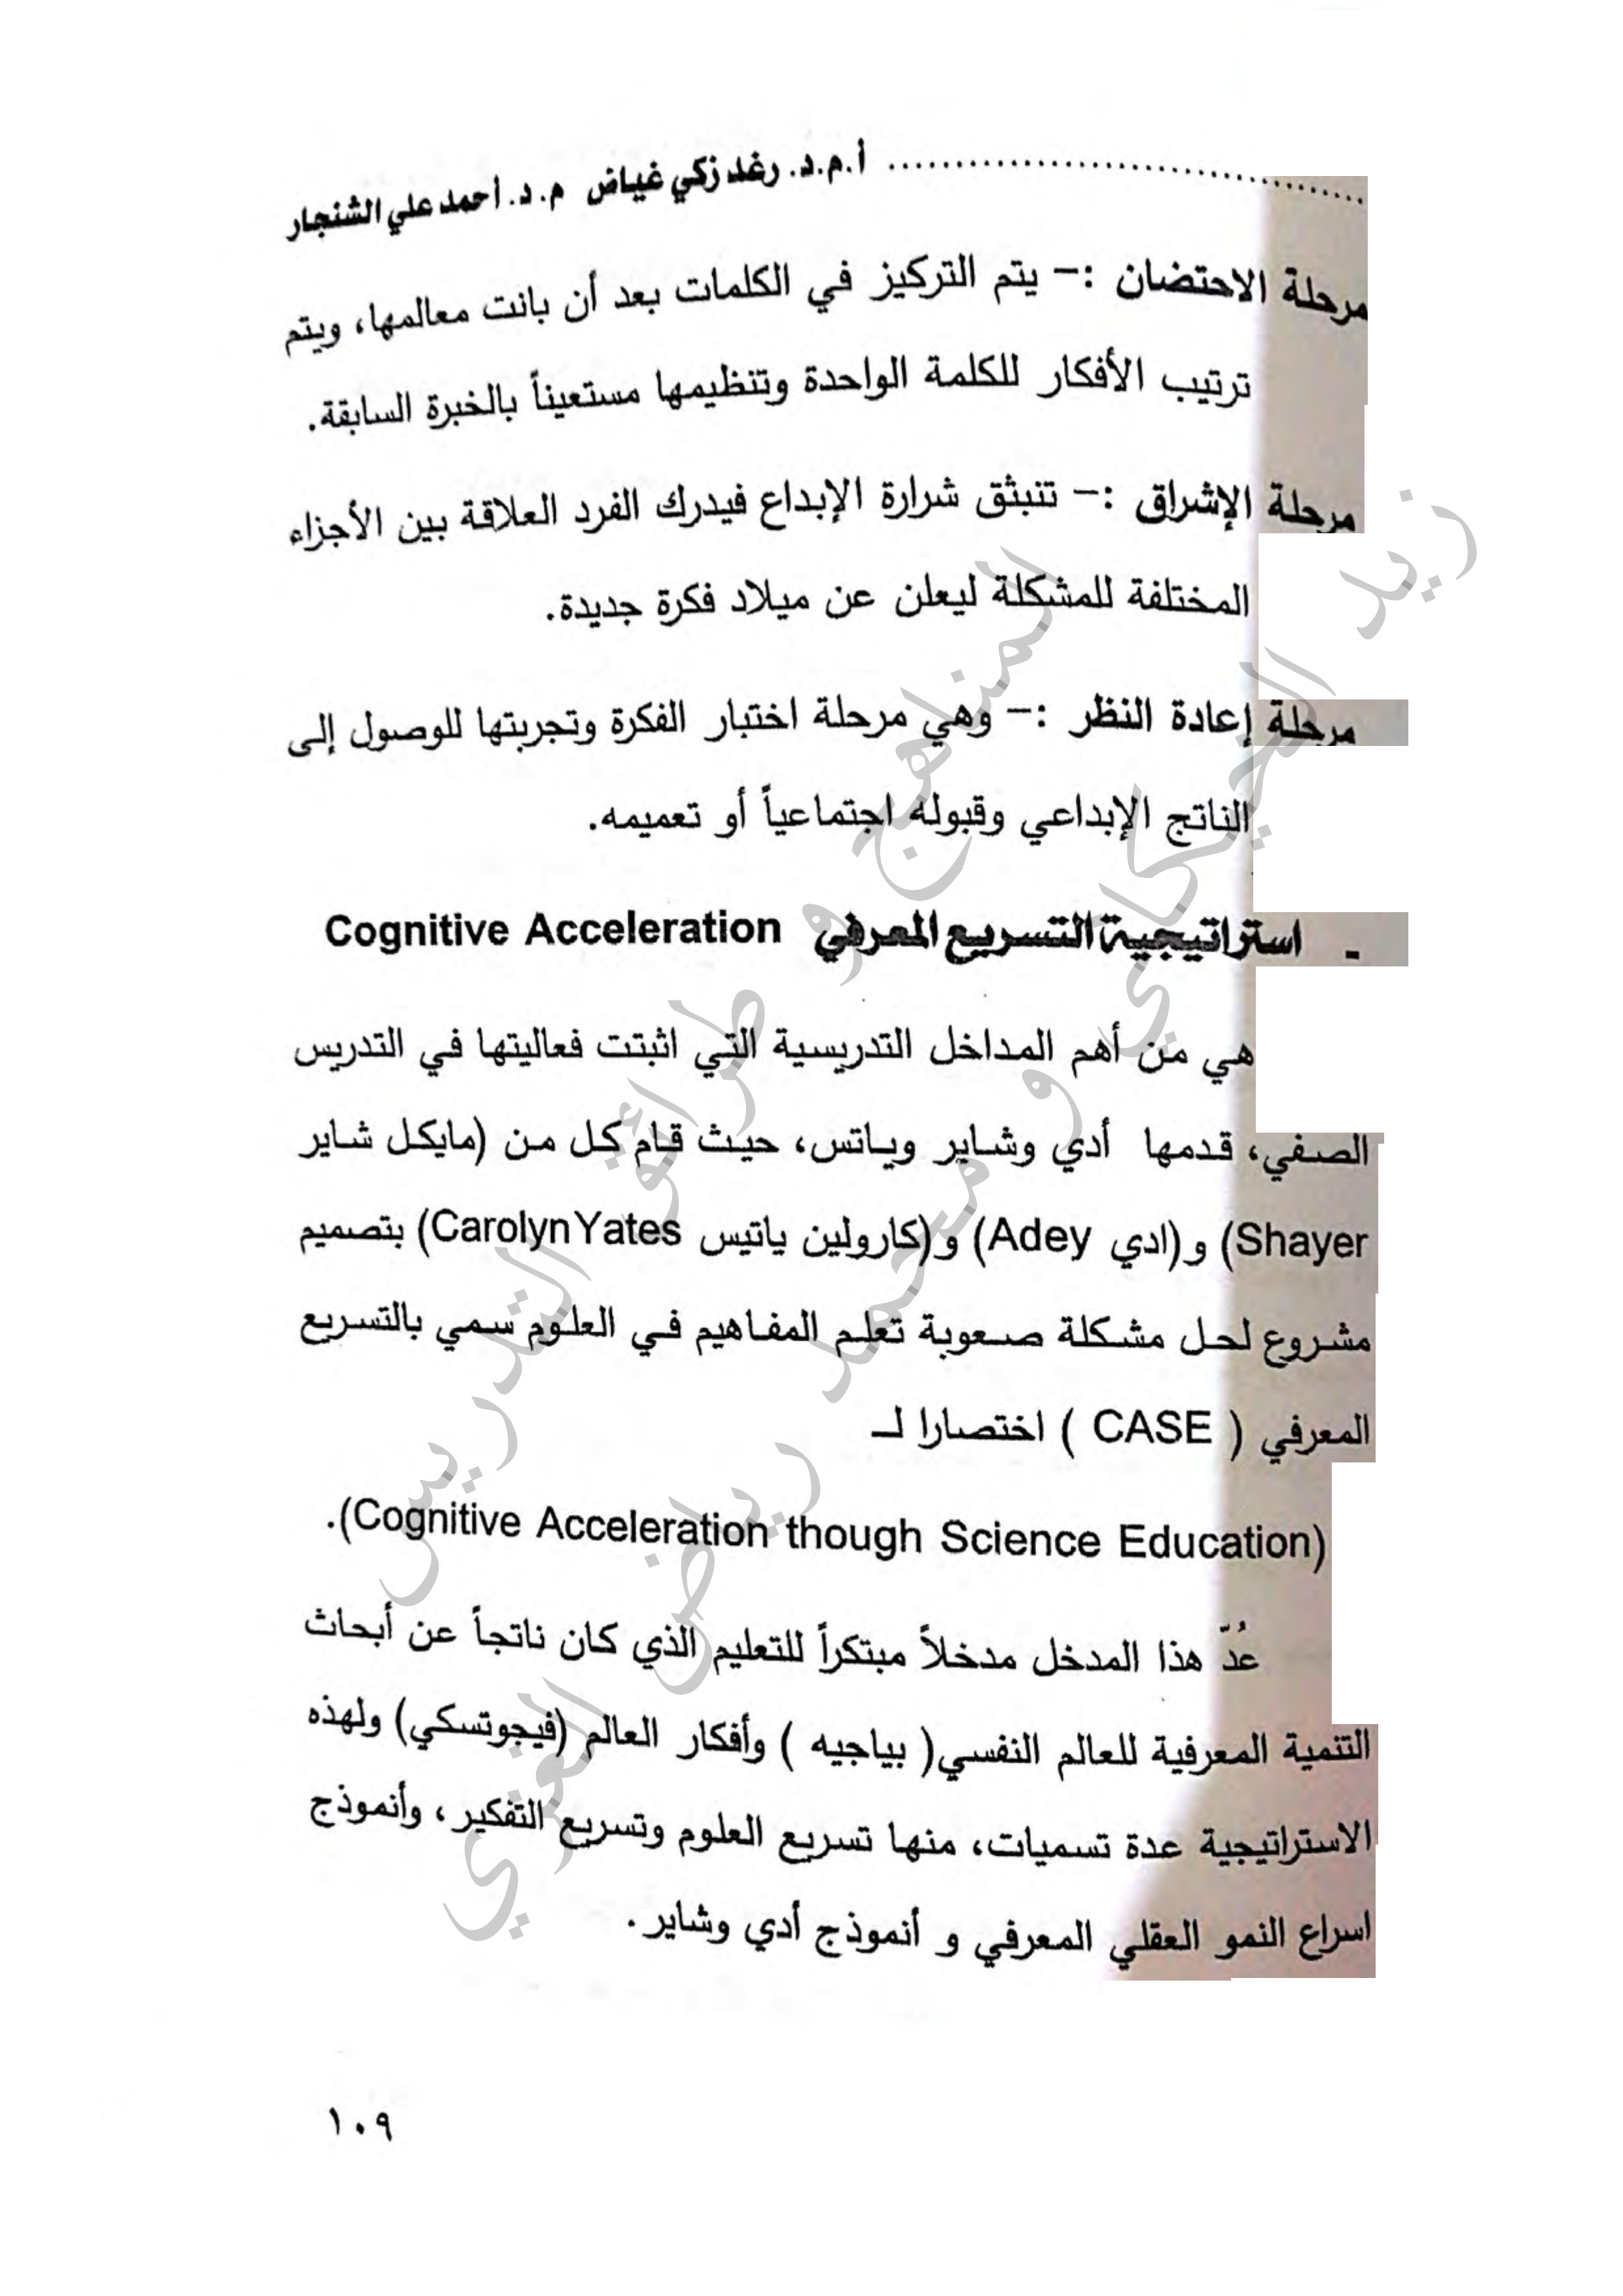 أ.م.د. رغد زكي غياض م.د. أحمد علي الشنجار
مرحلة الاحتضان :– يتم التركيز في الكلمات بعد أن بانت معالمها، ويتم
ترتيب الأفكار للكلمة الواحدة وتنظيمها مستعيناً بالخبرة السابقة.
مرحلة الإشراق :– تنبثق شرارة الإبداع فيدرك الفرد العلاقة بين الأجزاء
المختلفة للمشكلة ليعلن عن ميلاد فكرة جديدة.
مرحلة إعادة النظر :– وهي مرحلة اختبار الفكرة وتجربتها للوصول إلى
الناتج الإبداعي وقبوله اجتماعياً أو تعميمه.
- استراتيجية التسريع المعرفي Cognitive Acceleration
هي من أهم المداخل التدريسية التي اثبتت فعاليتها في التدريس
الصفي، قدمها أدي وشاير وياتس، حيث قام كل من (مايكل شاير
Shayer) و(ادي Adey) و(كارولين ياتيس CarolynYates) بتصميم
مشروع لحل مشكلة صعوبة تعلم المفاهيم في العلوم سمي بالتسريع
المعرفي ( CASE ) اختصارا لـ
(Cognitive Acceleration though Science Education).
عُدّ هذا المدخل مدخلاً مبتكراً للتعليم الذي كان ناتجاً عن أبحاث
التنمية المعرفية للعالم النفسي( بياجيه ) وأفكار العالم (فيجوتسكي) ولهذه
الاستراتيجية عدة تسميات، منها تسريع العلوم وتسريع التفكير، وأنموذج
اسراع النمو العقلي المعرفي و أنموذج أدي وشاير.
١٠٩
المناهج و طرائق التدريس
زيد الحيكاي و محمد رياض الغزي